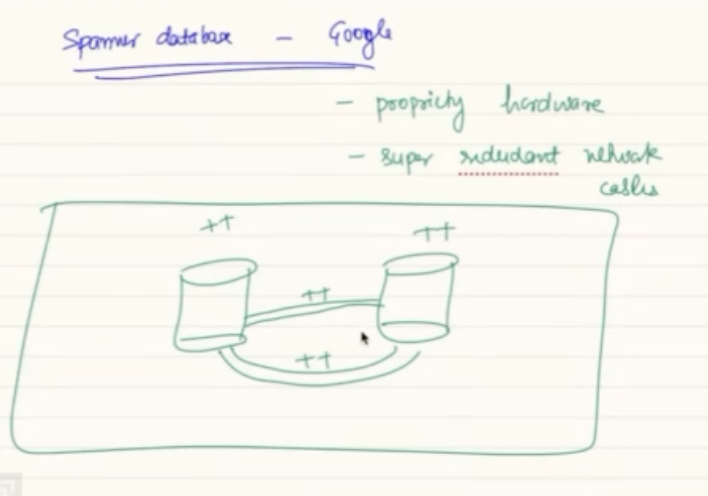 Spanner database - Google
- propriety hardware
- super redudant network
cables
++ ++
++
++